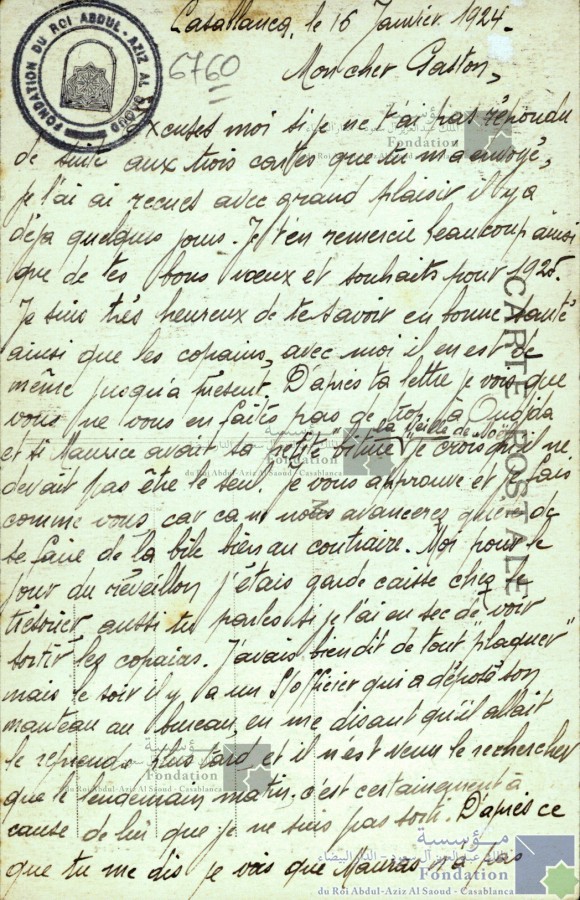 Casablanca, le 16 Janvier 1924.
6760
FONDATION DU ROI ABDUL-AZIZ AL SAOUD
Mon cher Gaston,
Excuses moi si je ne t'ai pas répondu
de suite aux trois cartes que tu m'a envoyé,
je l'ai ai recues avec grand plaisir il y a
déja quelques jours. Je t'en remercie beaucoup ainsi
que de tes bons vœux et souhaits pour 1925.
Je suis très heureux de te savoir en bonne santé
ainsi que les copains, avec moi il en est de
même jusqu'à présent. D'après ta lettre je vois que
vous ne vous en faites pas de trop à Oudjda
la veille de Noël
et si Maurice avait sa petite biture je crois qu'il ne
devait pas être le seul. Je vous approuve et je fais
comme vous, car ca ne nous avancerez guère de
se faire de la bile bien au contraire. Moi pour le
jour du réveillon j'étais garde caisse chez le
trésorier aussi tu parles si je l'ai eu sec de voir
sortir les copains. J'avais bien dit de tout "plaquer"
mais le soir il y a un S/officier qui a déposé son
manteau au bureau, en me disant qu'il allait
le reprendre plus tard, et il n'est venu le rechercher
que le lendemain matin, c'est certainement à
cause de lui que je ne suis pas sorti. D'après ce
que tu me dis je vois que Mauras n'a pas
CARTE POSTALE
مؤسسة
الملك عبد العزيز آل سعود - الدار البيضاء
Fondation
du Roi Abdul-Aziz Al Saoud - Casablanca